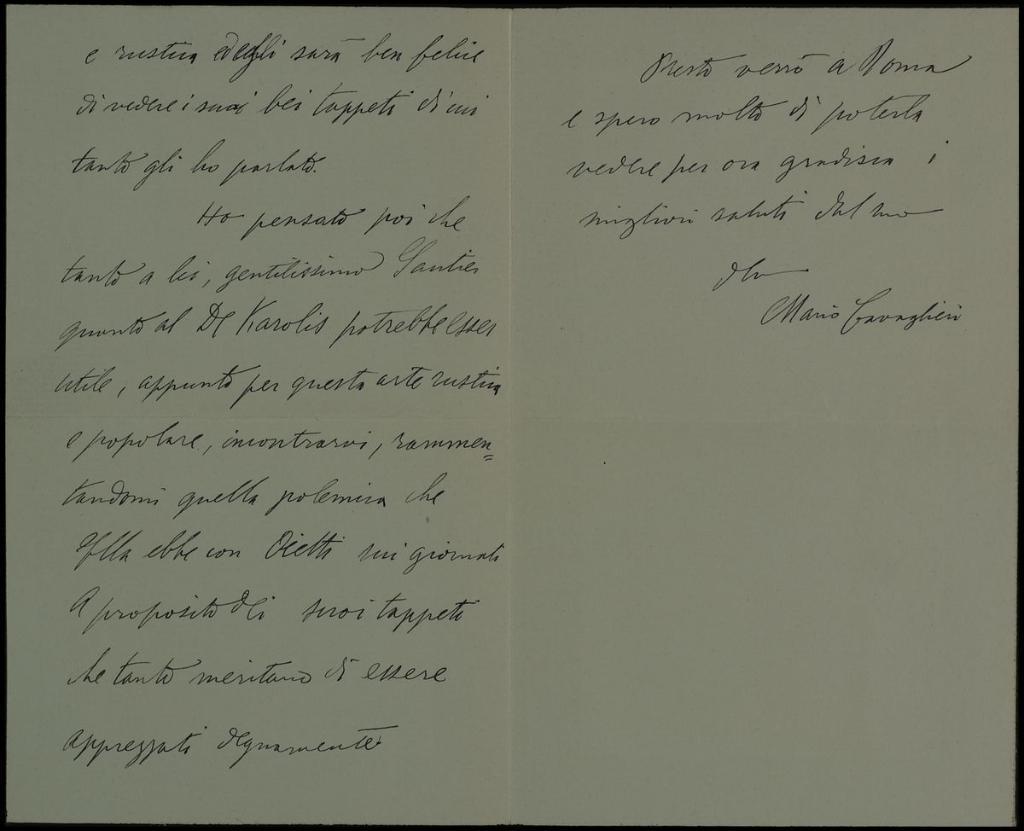 e rustica ed egli sarà ben felice
di vedere i suoi bei tappeti di cui
tanto gli ho parlato.
Ho pensato poi che
tanto a lei, gentilissimo
quanto al De Karolis potrebbe esser
utile, appunto per questa arte rustica
e popolare, incontrarvi, rammen=
tandomi quella polemica che
Ella ebbe con Ojetti sui giornali
a proposito dei suoi tappeti
che tanto meritano di essere
apprezzati degnamente
Presto verrò a Roma
e spero molto di poterla
vedere per ora gradisca i
migliori saluti dal suo
Mario Cavaglieri